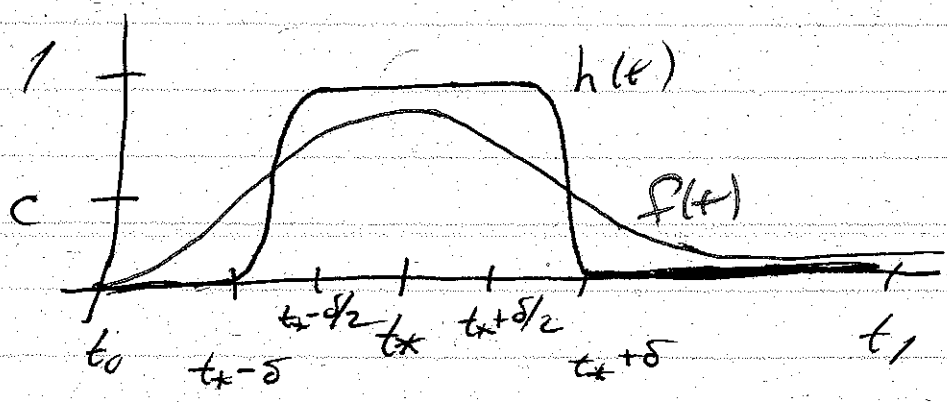 1
h(t)
c
f(t)
t₀
t_*-δ
t_*-δ/2
t_*
t_*+δ/2
t_*+δ
t₁